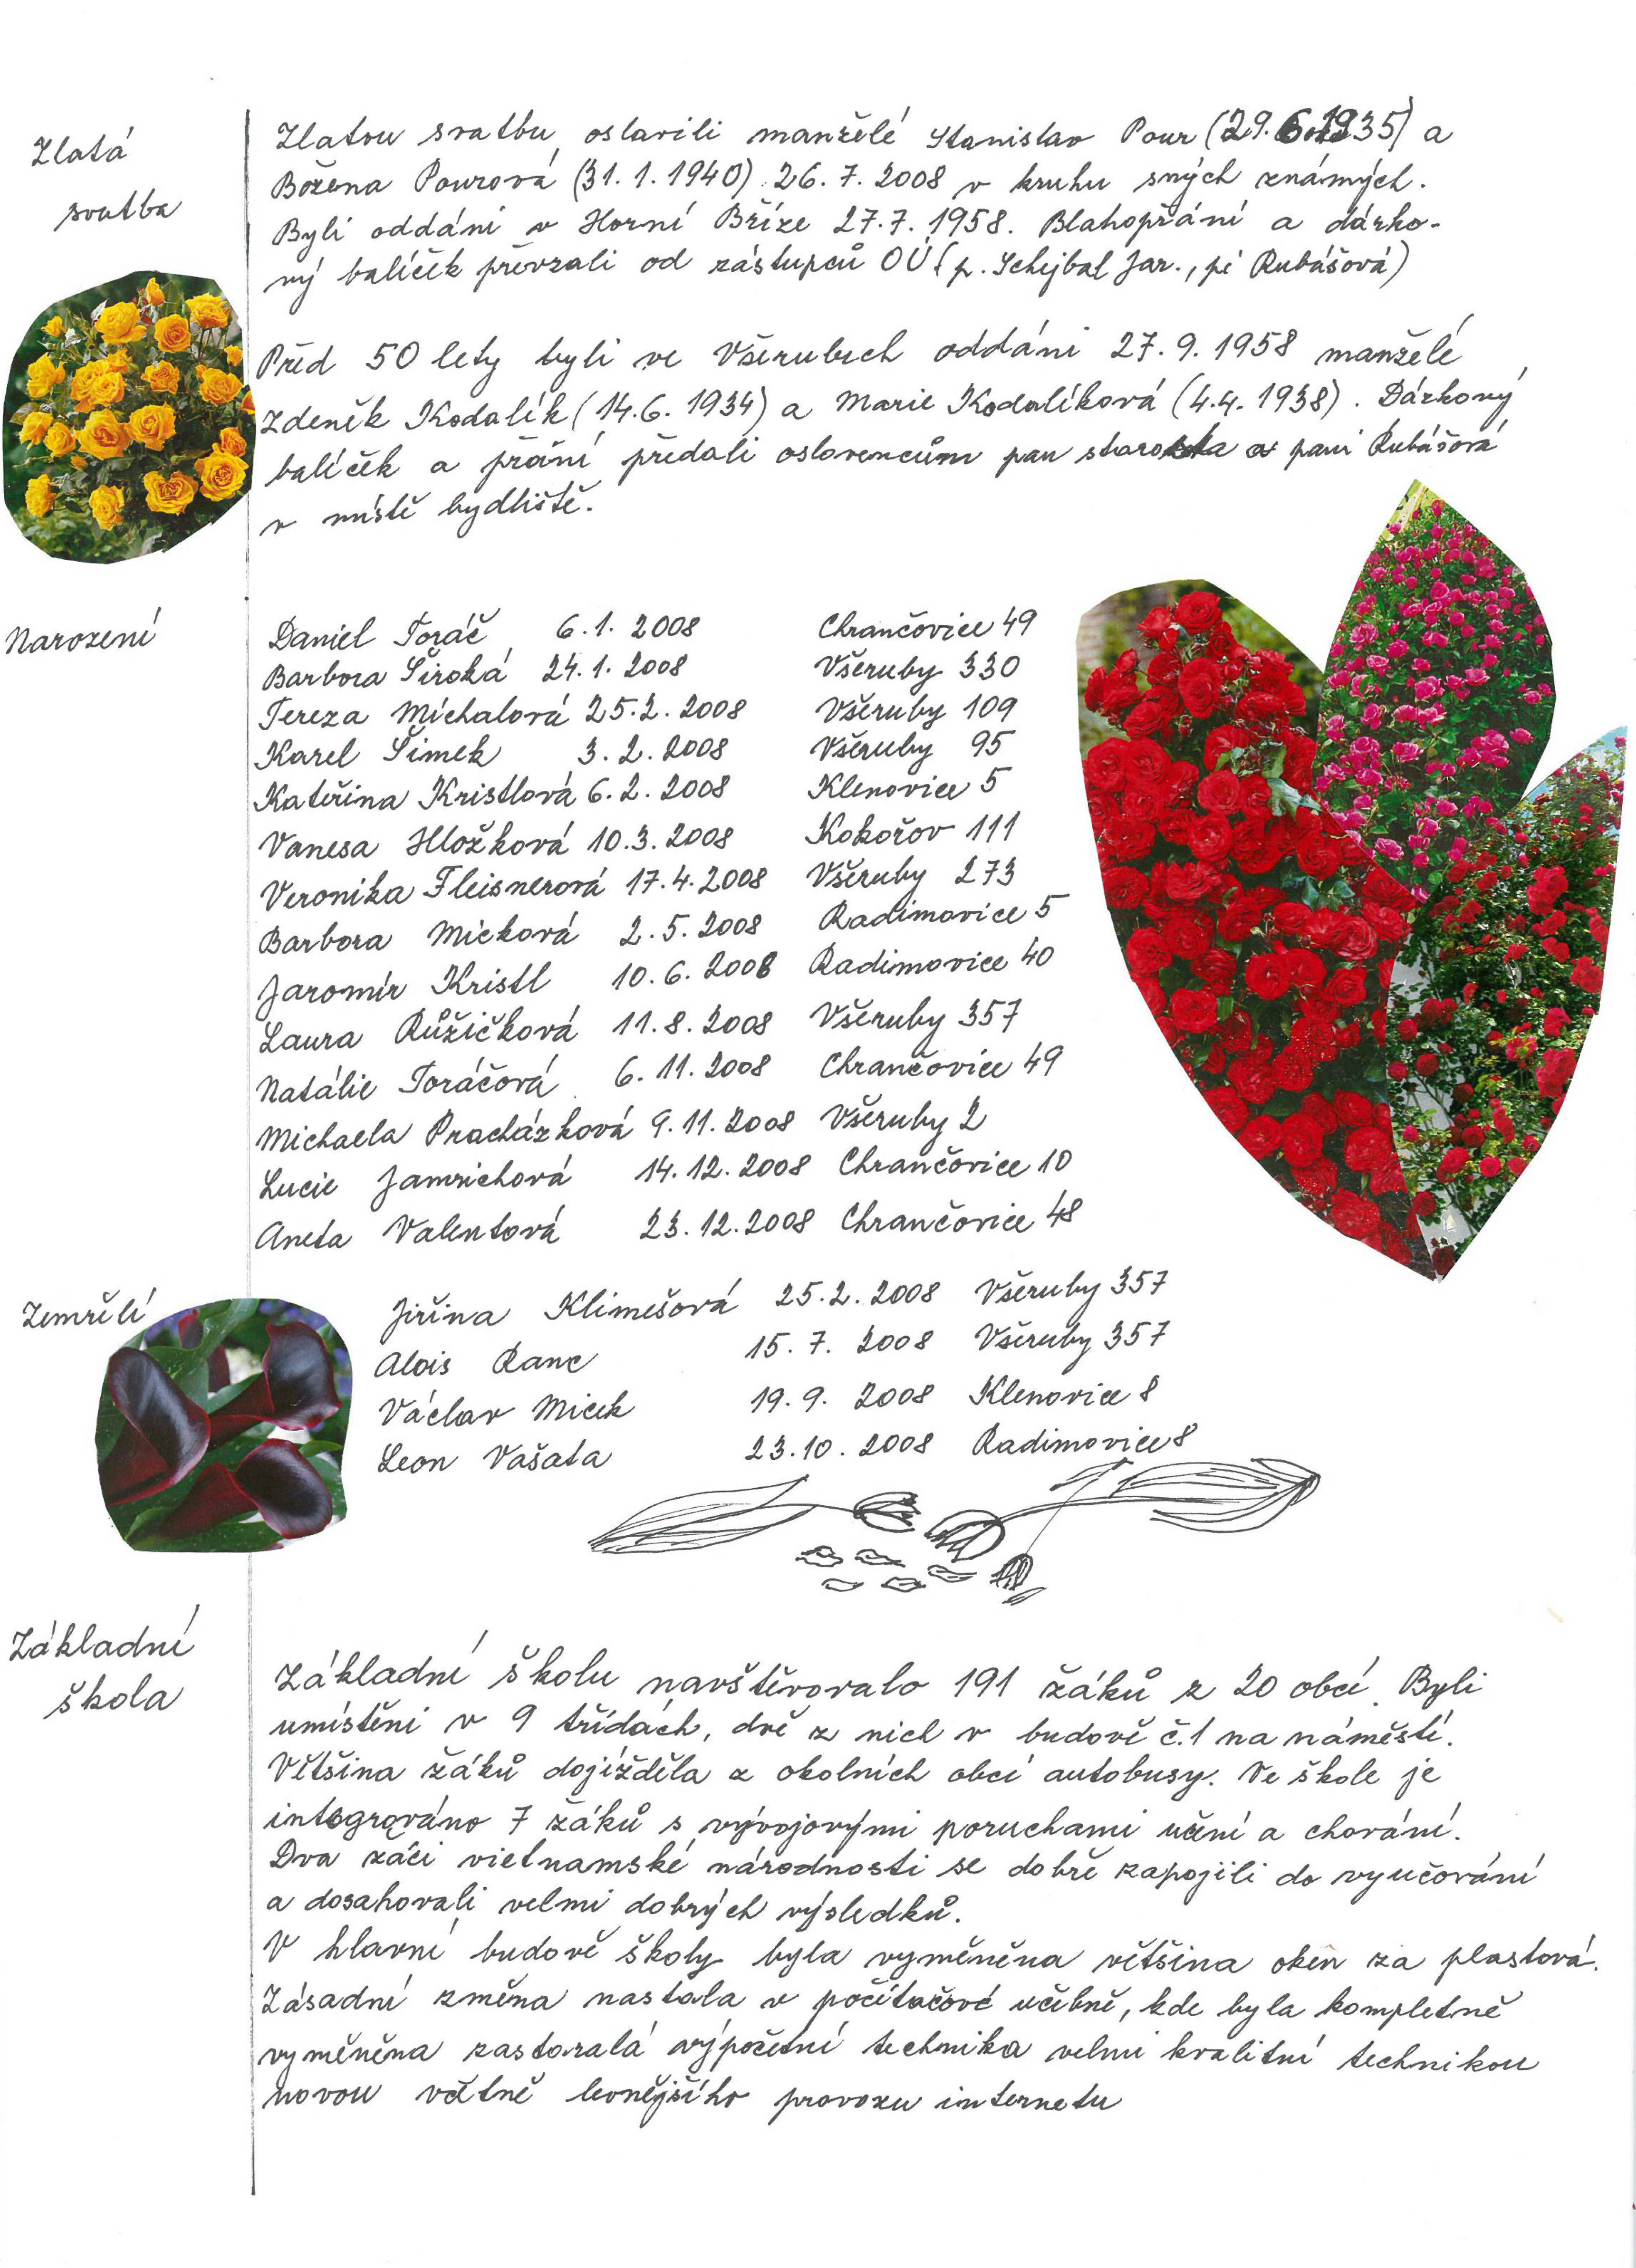 Zlatá
svatba
Zlatou svatbu oslavili manželé Stanislav Pour (29.6.1935) a
Božena Pourová (31.1.1940) 26.7.2008 v kruhu svých známých.
Byli oddáni v Horní Bříze 27.7.1958. Blahopřání a dárko-
vý balíček převzali od zástupců OÚ (p. Schejbal Jar., pí Rubášová)
Před 50 lety byli ve Všerubech oddáni 27.9.1958 manželé
Zdeněk Kodalík (14.6.1934) a Marie Kodalíková (4.4.1938). Dárkový
balíček a přání předali oslavencům pan starosta a paní Rubášová
v místě bydliště.
Narození
Daniel Toráč 6.1.2008 Chrančovice 49
Barbora Široká 24.1.2008 Všeruby 330
Tereza Michalová 25.2.2008 Všeruby 109
Karel Šimek 3.2.2008 Všeruby 95
Kateřina Kristlová 6.2.2008 Klenovice 5
Vanesa Hložková 10.3.2008 Kokořov 111
Veronika Fleisnerová 17.4.2008 Všeruby 273
Barbora Micková 2.5.2008 Radimovice 5
Jaromír Kristl 10.6.2008 Radimovice 40
Laura Růžičková 11.8.2008 Všeruby 357
Natálie Toráčová 6.11.2008 Chrančovice 49
Michaela Procházková 9.11.2008 Všeruby 2
Lucie Jamrichová 14.12.2008 Chrančovice 10
Aneta Valentová 23.12.2008 Chrančovice 48
Zemřelí
Jiřina Klimešová 25.2.2008 Všeruby 357
Alois Ranc 15.7.2008 Všeruby 357
Václav Micek 19.9.2008 Klenovice 8
Leon Vašata 23.10.2008 Radimovice 8
Základní
škola
Základní školu navštěvovalo 191 žáků z 20 obcí. Byli
umístěni v 9 třídách, dvě z nich v budově č.1 na náměstí.
Většina žáků dojížděla z okolních obcí autobusy. Ve škole je
integrováno 7 žáků s vývojovými poruchami učení a chování.
Dva žáci vietnamské národnosti se dobře zapojili do vyučování
a dosahovali velmi dobrých výsledků.
V hlavní budově školy byla vyměněna většina oken za plastová.
Zásadní změna nastala v počítačové učebně, kde byla kompletně
vyměněna zastaralá výpočetní technika velmi kvalitní technikou
novou včetně levnějšího provozu internetu